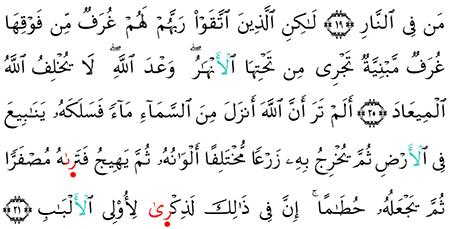 مَن فِى ٱلنَّارِ ﴿١٩﴾ لَـٰكِنِ ٱلَّذِينَ ٱتَّقَوْا۟ رَبَّهُمْ لَهُمْ غُرَفٌ مِّن فَوْقِهَا
غُرَفٌ مَّبْنِيَّةٌ تَجْرِى مِن تَحْتِهَا ٱلْأَنْهَـٰرُ ۖ وَعْدَ ٱللَّهِ ۖ لَا يُخْلِفُ ٱللَّهُ
ٱلْمِيعَادَ ﴿٢٠﴾ أَلَمْ تَرَ أَنَّ ٱللَّهَ أَنزَلَ مِنَ ٱلسَّمَآءِ مَآءً فَسَلَكَهُۥ يَنَـٰبِيعَ
فِى ٱلْأَرْضِ ثُمَّ يُخْرِجُ بِهِۦ زَرْعًا مُّخْتَلِفًا أَلْوَٰنُهُۥ ثُمَّ يَهِيجُ فَتَرَىٰهُ مُصْفَرًّا
ثُمَّ يَجْعَلُهُۥ حُطَـٰمًا ۚ إِنَّ فِى ذَٰلِكَ لَذِكْرَىٰ لِأُو۟لِى ٱلْأَلْبَـٰبِ ﴿٢١﴾